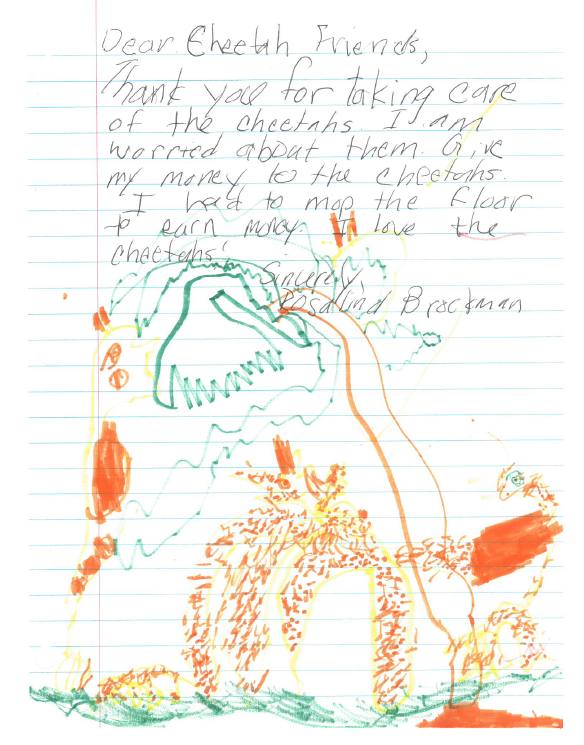 Dear Cheetah Friends,
Thank you for taking care
of the cheetahs. I am
worried about them. Give
my money to the cheetahs.
I had to mop the floor
to earn money I love the
cheetahs!
Sincerely,
Rosalind Brockman